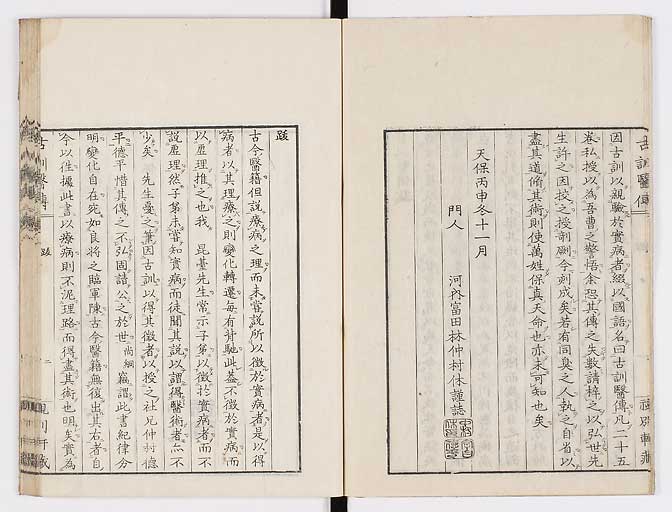 因古訓以親驗於實病者綴以國語名曰古訓醫傳凡二十五
卷私授以為吾曹之警悟余恐其傳之失數請梓之以弘世先
生許之因校之授剞劂今刻成矣若有同臭之人執之自省以
盡其道脩其術則使萬姓保真天命也亦未可知也矣
天保丙申冬十一月
門人
河內富田林仲村休謹誌
古訓醫傳
跋
古今醫籍但說療病之理而未嘗說所以徵於實病者是以得
病者以其理療之則變化轉遷每有背馳此蓋不徵於實病而
以虛理推之也我 昆臺先生常示子弟以徵於實病者而不
說虛理然子弟未嘗知實病而徒聞其說以謂得醫術者亦不
少矣 先生憂之筆因古訓以得其徵者以授之社兄仲村德
平德平惜其傳之不弘固請公之於世尚綱竊謂此書紀律分
明變化自在宛如良將之臨軍陳古今醫籍無復出其右者自
今以往據此書以療病則不泥理路而得盡其術也明矣實為
古訓醫傳
跋
二